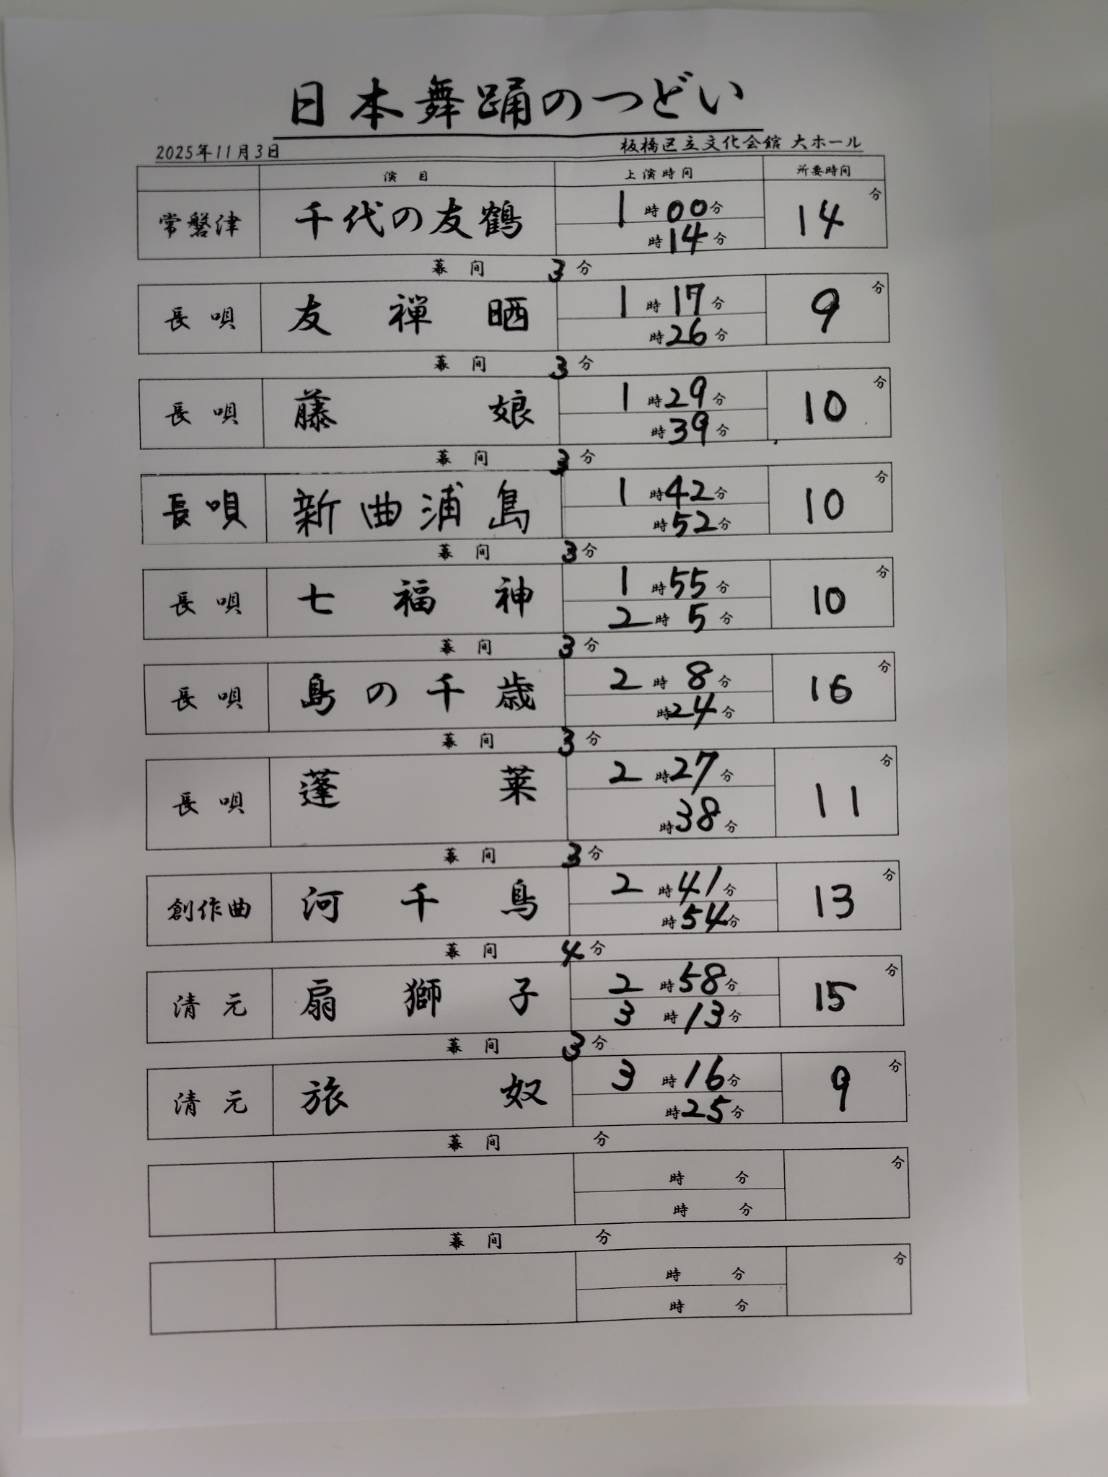 日本舞踊のつどい
2025年11月3日 板橋区立文化会館 大ホール
演目 上演時間 所要時間
常磐津 千代の友鶴 1時00分 時14分 14分
幕間 3分
長唄 友禅晒 1時17分 時26分 9分
幕間 3分
長唄 藤娘 1時29分 時39分 10分
幕間 3分
長唄 新曲浦島 1時42分 時52分 10分
幕間 3分
長唄 七福神 1時55分 2時5分 10分
幕間 3分
長唄 島の千歳 2時8分 時24分 16分
幕間 3分
長唄 蓬莱 2時27分 時38分 11分
幕間 3分
創作曲 河千鳥 2時41分 時54分 13分
幕間 4分
清元 扇獅子 2時58分 3時13分 15分
幕間 3分
清元 旅奴 3時16分 時25分 9分
幕間 分
時 分 時 分 分
幕間 分
時 分 時 分 分